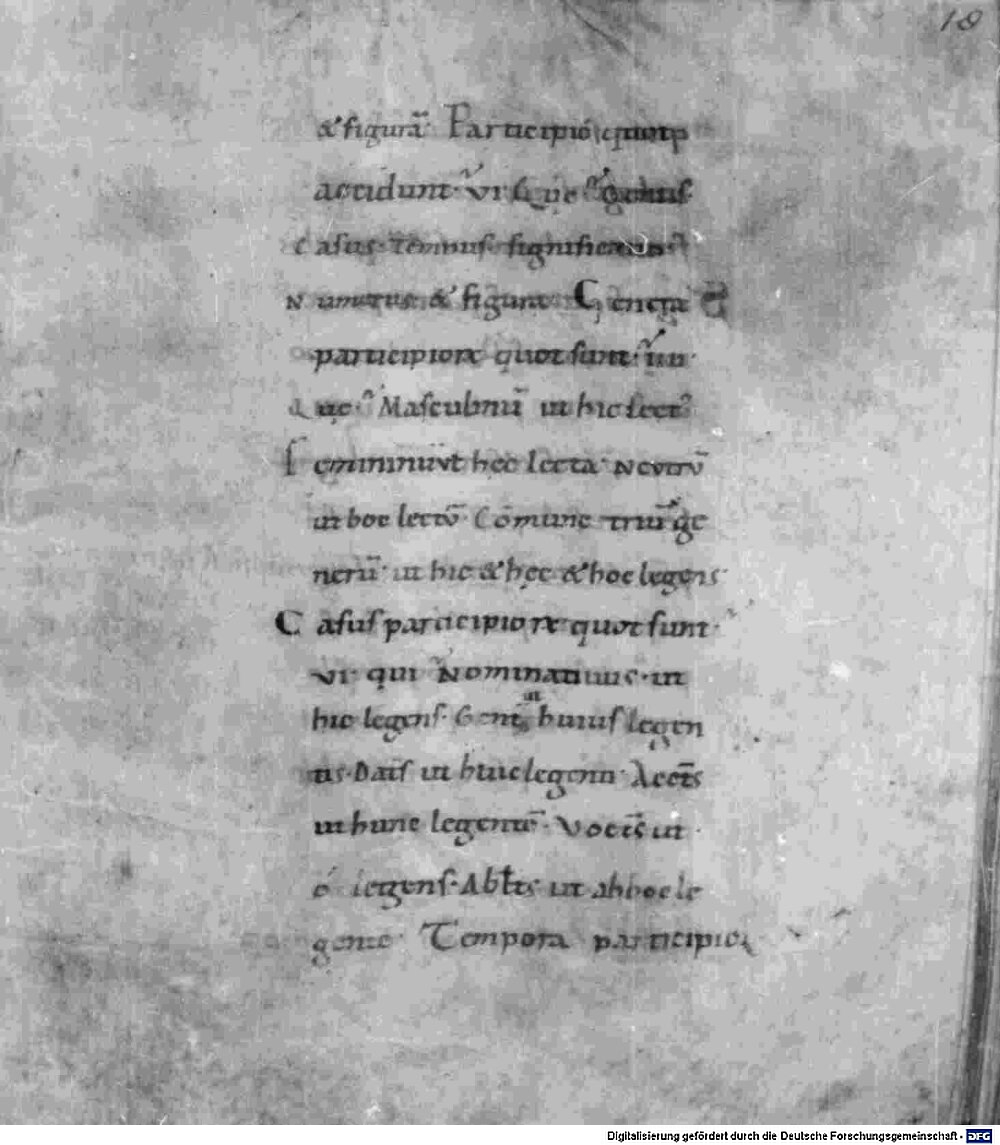 18
& figurā. Participio quot
accidunt. vi. Que s̄. genus.
casus. tempus. significatio.
Numerus & figura. Genera
participioꝝ quot sunt. iiii.
Que s̄. Masculinū ut hic lect᾽
femininū ut hec lecta. Neutrū
ut hoc lectū. Cōmune triū ge
nerū. ut hic & hęc & hoc legens.
Casus participioꝝ quot sunt.
vi. qui Nominatiuus. ut
hic legens. Genit̄ ut huius legen
tis. Dat̄s ut huic legenti. Acct̄s
ut hunc legentē. Voct̄s ut
ó legens. Ablt̄s ut ab hoc le
gente. Tempora participioꝝ
Digitalisierung gefördert durch die Deutsche Forschungsgemeinschaft - DFG